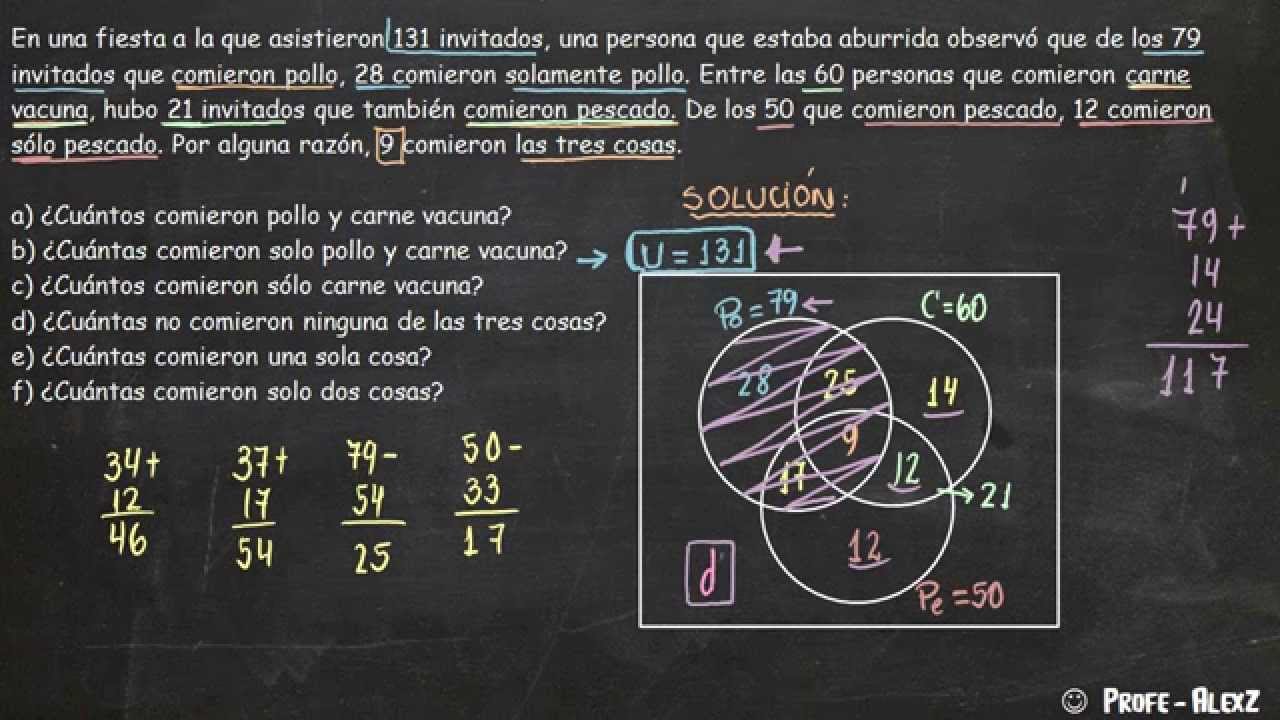 En una fiesta a la que asistieron 131 invitados, una persona que estaba aburrida observó que de los 79
invitados que comieron pollo, 28 comieron solamente pollo. Entre las 60 personas que comieron carne
vacuna, hubo 21 invitados que también comieron pescado. De los 50 que comieron pescado, 12 comieron
sólo pescado. Por alguna razón, 9 comieron las tres cosas.
SOLUCIÓN:
a) ¿Cuántos comieron pollo y carne vacuna?
b) ¿Cuántas comieron solo pollo y carne vacuna?
U = 131
c) ¿Cuántos comieron sólo carne vacuna?
d) ¿Cuántas no comieron ninguna de las tres cosas?
e) ¿Cuántas comieron una sola cosa?
f) ¿Cuántas comieron solo dos cosas?
1
79+
14
24
117
Po = 79
C = 60
28
25
14
9
17
12
21
12
d
Pe = 50
34+
12
46
37+
17
54
79-
54
25
50-
33
17
PROFE - ALEXZ